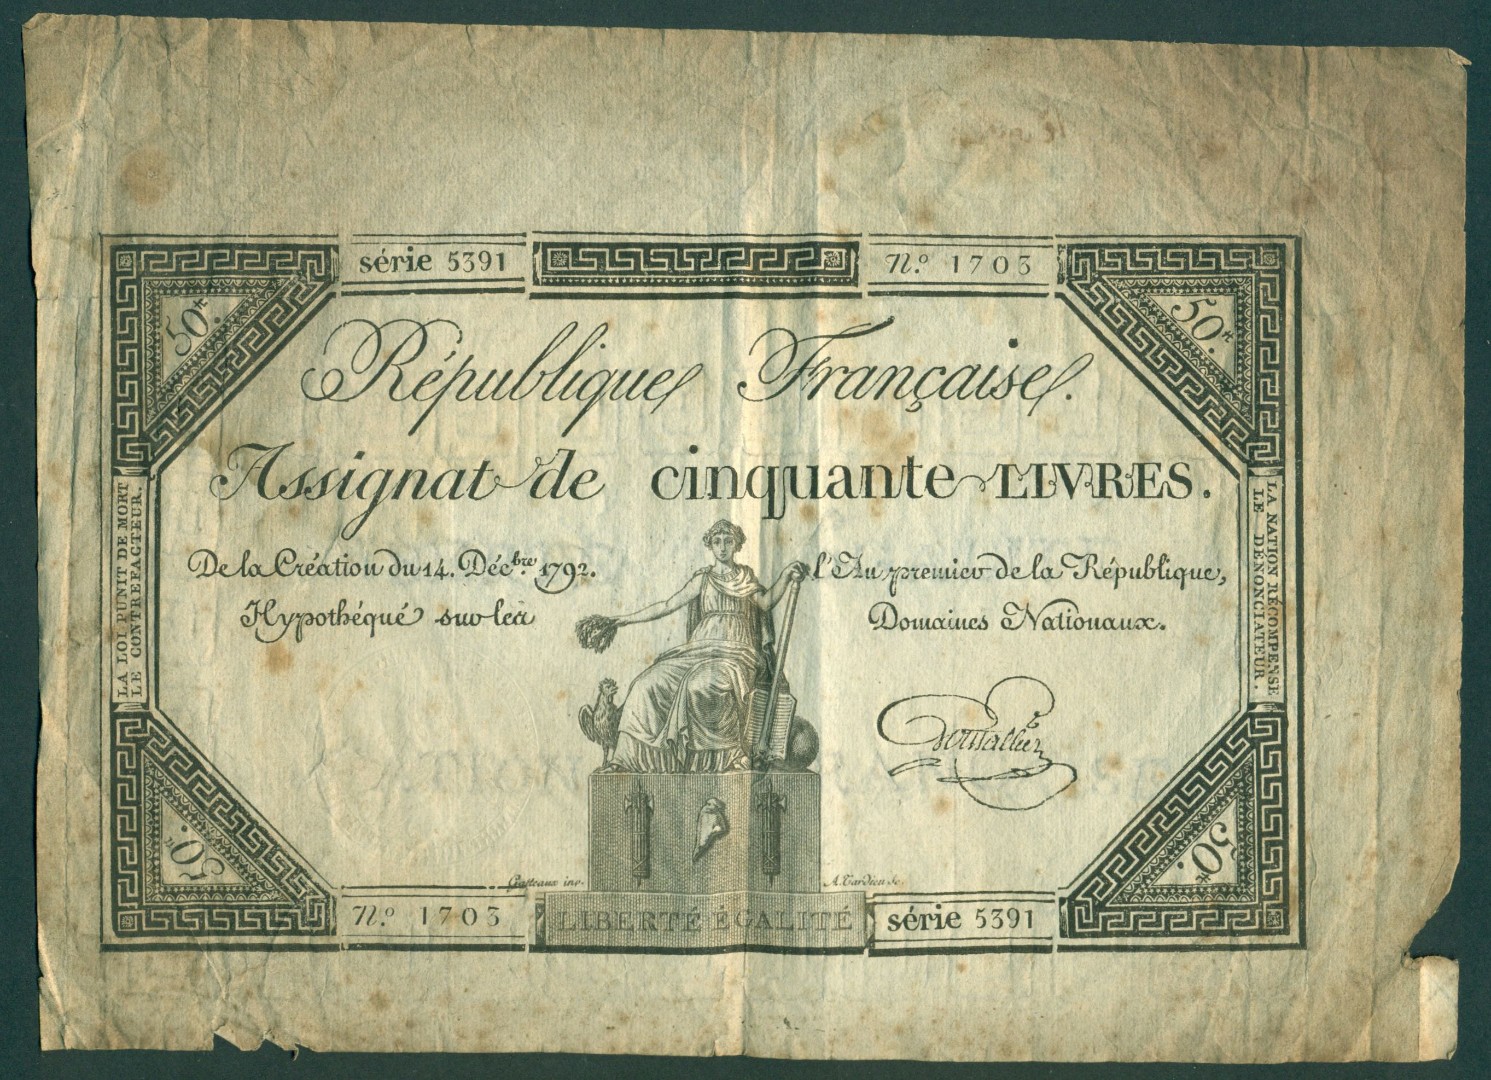 série 5391
N.º 1703
50.tt
50.tt
République Française.
Assignat de cinquante LIVRES.
De la Création du 14. Déc.bre 1792.
l'An premier de la République,
Hypothéqué sur les
Domaines Nationaux.
LA LOI PUNIT DE MORT
LE CONTREFACTEUR.
LA NATION RÉCOMPENSE
LE DÉNONCIATEUR.
Gatteaux inv.
A. Tardieu sc.
50.tt
50.tt
N.º 1703
LIBERTÉ ÉGALITÉ
série 5391